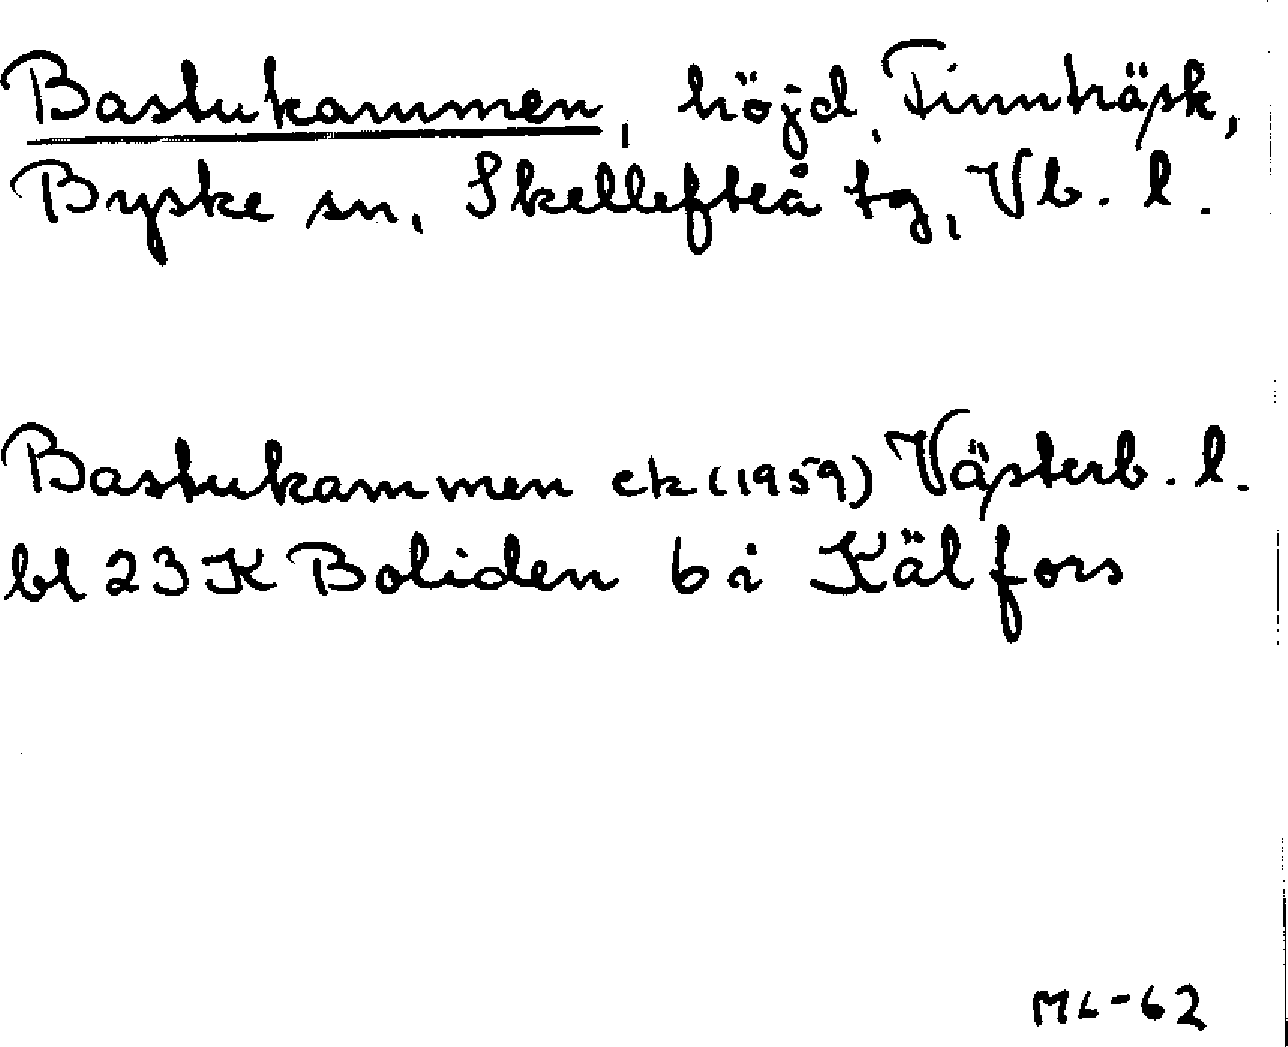 Bastukammen, höjd, Finnträsk,
Byske sn, Skellefteå tg, Vb. l.
Bastukammen ek (1959) Västerb. l.
bl 23 K Boliden bi Kälfors
ML-62